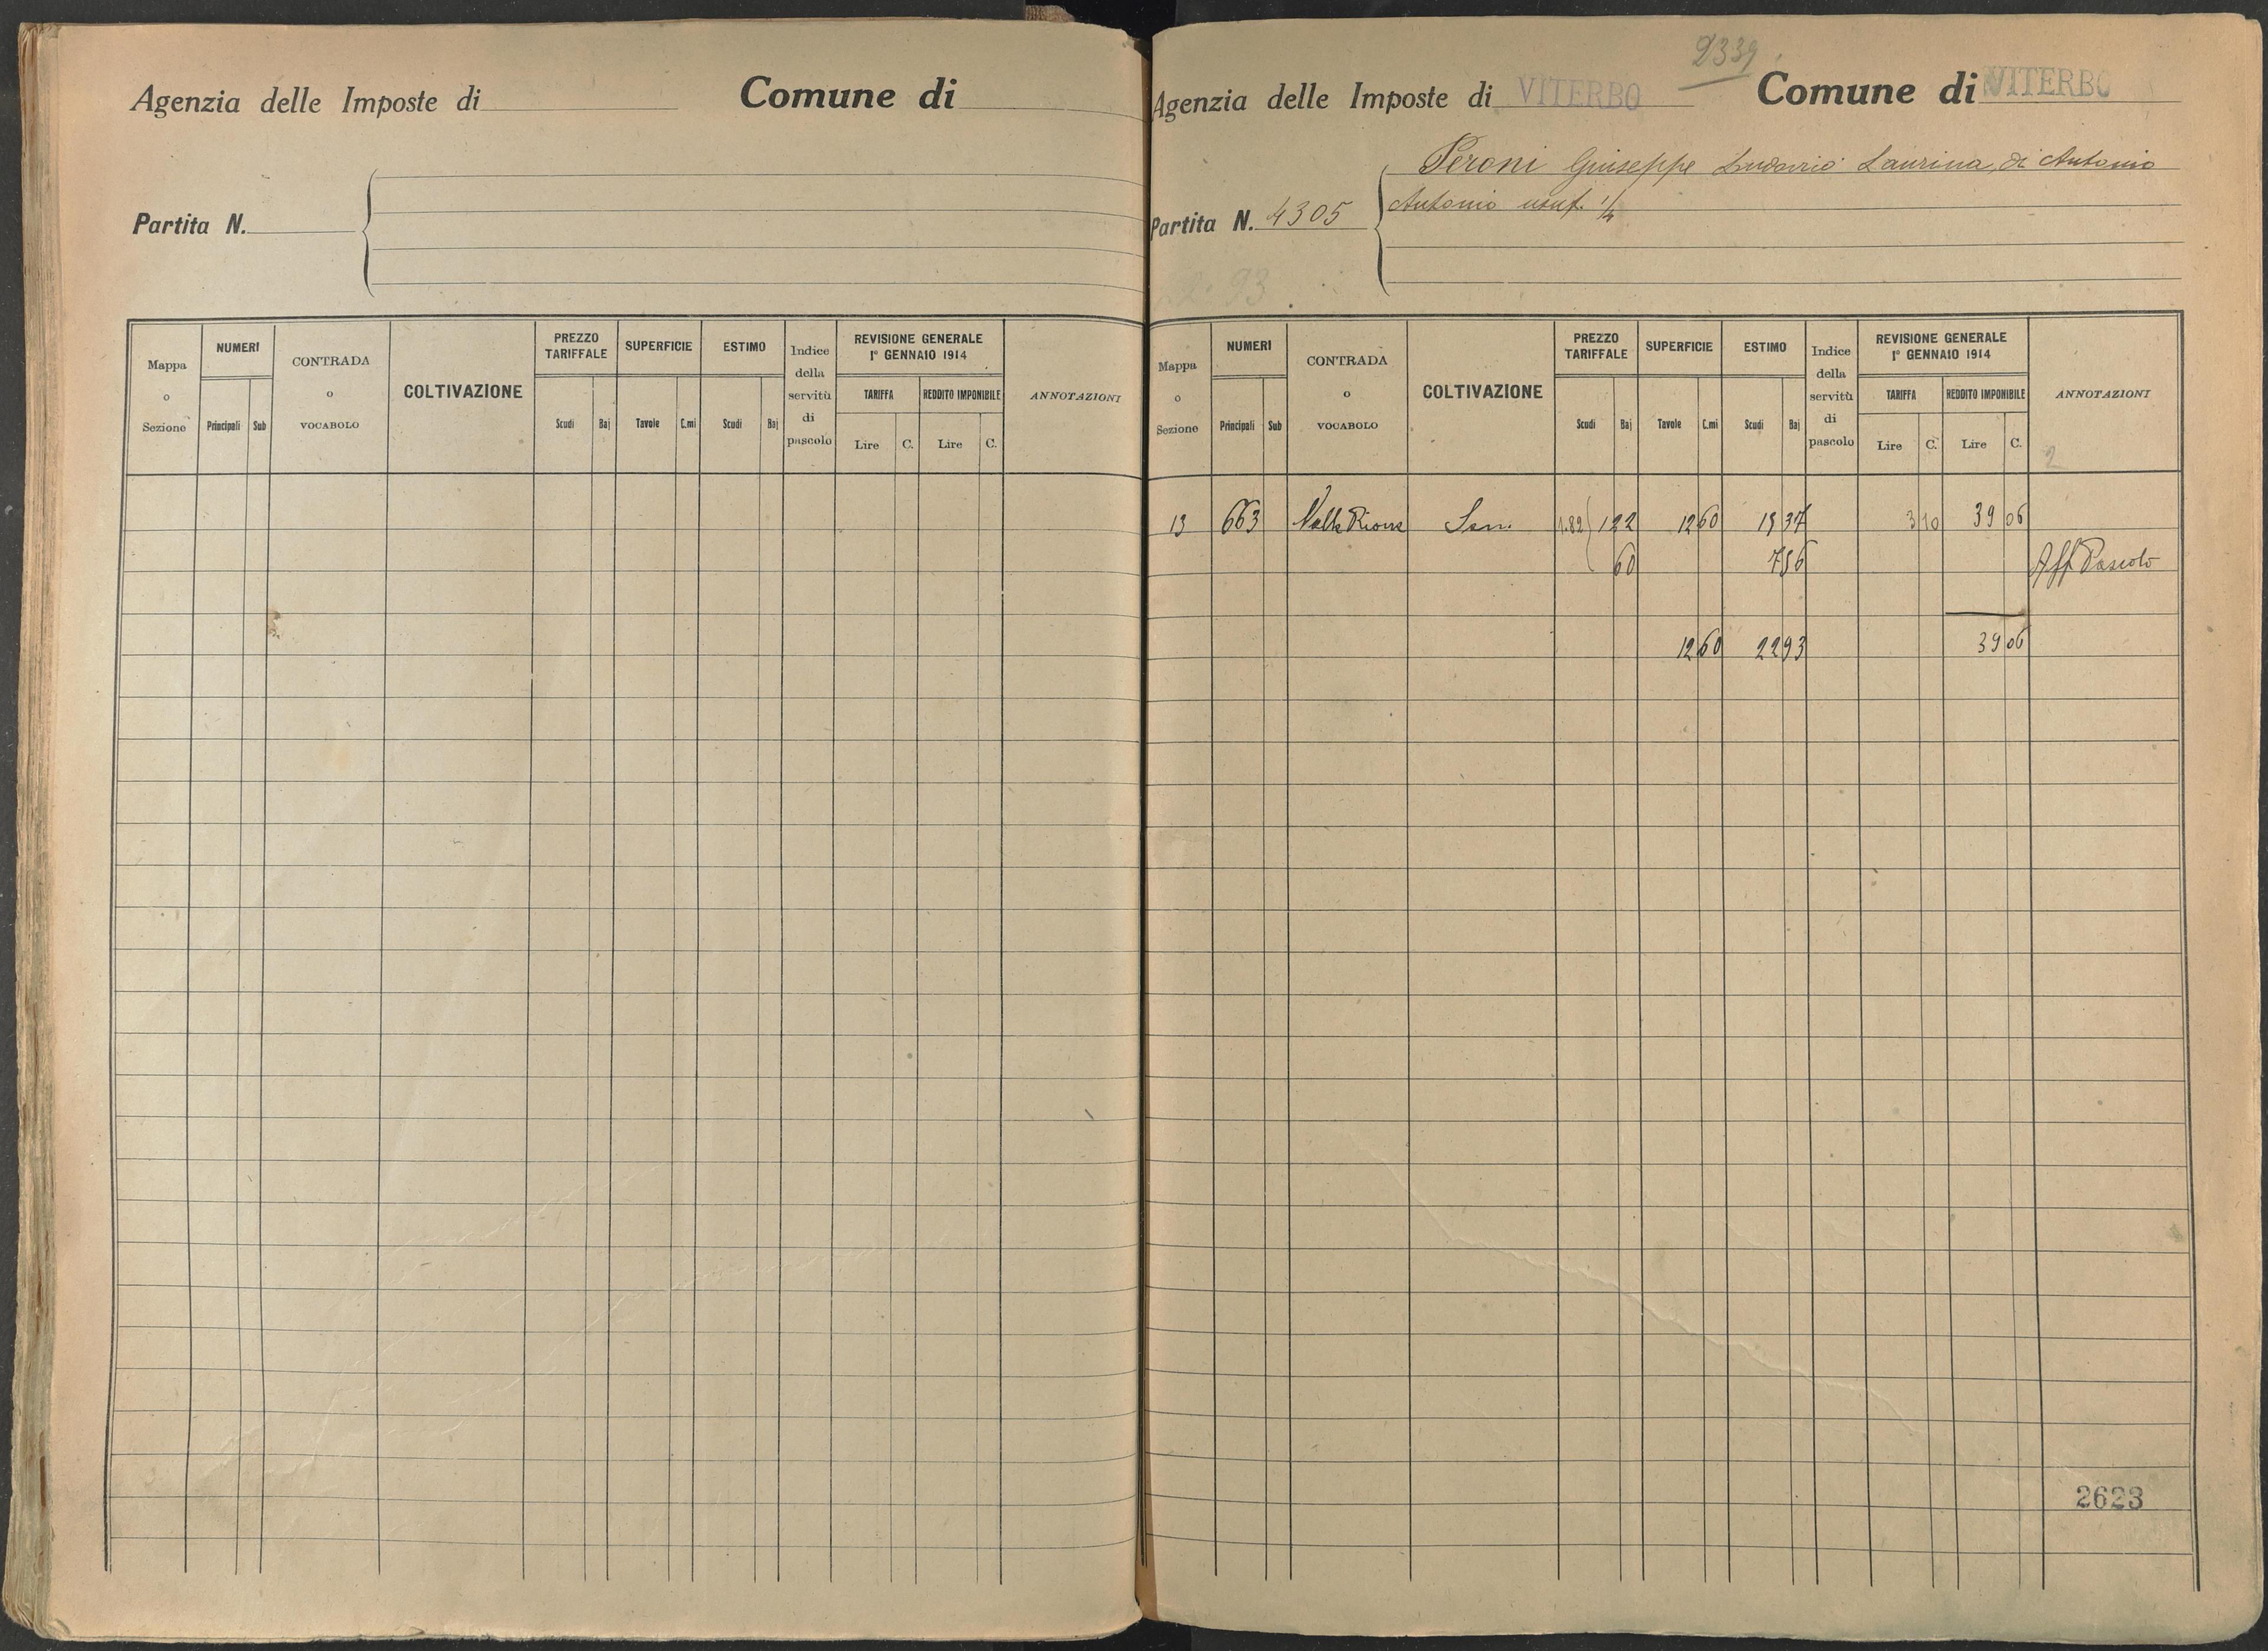 Agenzia delle Imposte di
Comune di
Partita N.
Mappa o Sezione
NUMERI
Principali
Sub
CONTRADA o VOCABOLO
COLTIVAZIONE
PREZZO TARIFFALE
Scudi
Baj
SUPERFICIE
Tavole
C.mi
ESTIMO
Scudi
Baj
Indice della servitù di pascolo
REVISIONE GENERALE
1° GENNAIO 1914
TARIFFA
Lire
C.
REDDITO IMPONIBILE
Lire
C.
ANNOTAZIONI
2339
Agenzia delle Imposte di VITERBO
Comune di VITERBO
Peroni Giuseppe Laurina, di Antonio
Antonio usuf. 1/4
Partita N. 4305
93
Mappa o Sezione
NUMERI
Principali
Sub
CONTRADA o VOCABOLO
COLTIVAZIONE
PREZZO TARIFFALE
Scudi
Baj
SUPERFICIE
Tavole
C.mi
ESTIMO
Scudi
Baj
Indice della servitù di pascolo
REVISIONE GENERALE
1° GENNAIO 1914
TARIFFA
Lire
C.
REDDITO IMPONIBILE
Lire
C.
ANNOTAZIONI
2
13 663 Sem. 1.82 1 22 12 60 15 37 3 10 39 06
60 7 56 Aff Pascolo
12 60 22 93 39 06
2623